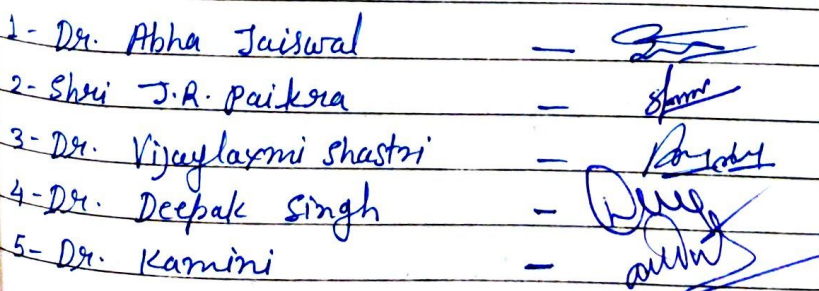 1- Dr. Abha Jaiswal -
2- Shri J.R. Paikra -
3- Dr. Vijaylaxmi Shastri -
4- Dr. Deepak Singh -
5- Dr. Kamini -